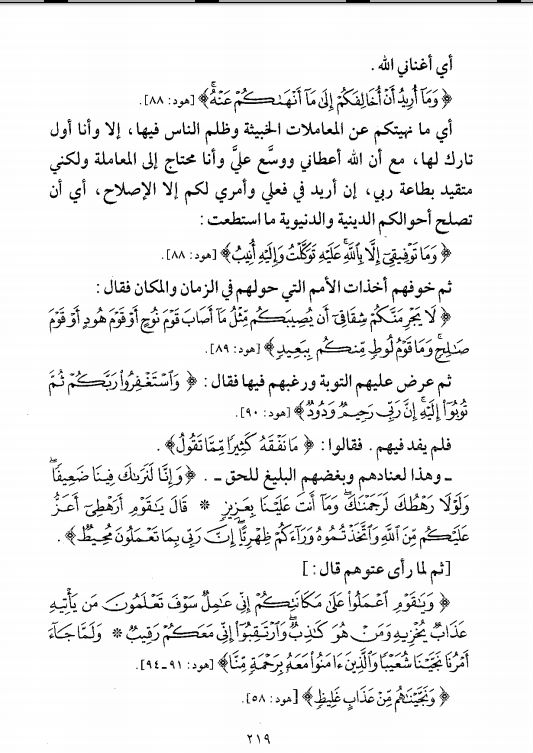 أي أغناني الله .
﴿ وَمَآ أُرِيدُ أَنْ أُخَالِفَكُمْ إِلَىٰ مَآ أَنْهَىٰكُمْ عَنْهُ ﴾ [هود: ٨٨].
أي ما نهيتكم عن المعاملات الخبيثة وظلم الناس فيها، إلا وأنا أول
تارك لها، مع أن الله أعطاني ووسَّع عليَّ وأنا محتاج إلى المعاملة ولكني
متقيد بطاعة ربي، إن أريد في فعلي وأمري لكم إلا الإصلاح، أي أن
تصلح أحوالكم الدينية والدنيوية ما استطعت :
﴿ وَمَا تَوْفِيقِىٓ إِلَّا بِٱللَّهِ ۚ عَلَيْهِ تَوَكَّلْتُ وَإِلَيْهِ أُنِيبُ ﴾ [هود: ٨٨].
ثم خوفهم أخذات الأمم التي حولهم في الزمان والمكان فقال :
﴿ لَا يَجْرِمَنَّكُمْ شِقَاقِىٓ أَن يُصِيبَكُم مِّثْلُ مَآ أَصَابَ قَوْمَ نُوحٍ أَوْ قَوْمَ هُودٍ أَوْ قَوْمَ
صَـٰلِحٍ ۚ وَمَا قَوْمُ لُوطٍ مِّنكُم بِبَعِيدٍ ﴾ [هود: ٨٩].
ثم عرض عليهم التوبة ورغبهم فيها فقال : ﴿ وَٱسْتَغْفِرُوا۟ رَبَّكُمْ ثُمَّ
تُوبُوٓا۟ إِلَيْهِ ۚ إِنَّ رَبِّى رَحِيمٌ وَدُودٌ ﴾ [هود: ٩٠].
فلم يفد فيهم . فقالوا : ﴿ مَا نَفْقَهُ كَثِيرًا مِّمَّا تَقُولُ ﴾ .
ـ وهذا لعنادهم وبغضهم البليغ للحق ـ . ﴿ وَإِنَّا لَنَرَىٰكَ فِينَا ضَعِيفًا ۖ
وَلَوْلَا رَهْطُكَ لَرَجَمْنَـٰكَ ۖ وَمَآ أَنتَ عَلَيْنَا بِعَزِيزٍ * قَالَ يَـٰقَوْمِ أَرَهْطِىٓ أَعَزُّ
عَلَيْكُم مِّنَ ٱللَّهِ وَٱتَّخَذْتُمُوهُ وَرَآءَكُمْ ظِهْرِيًّا ۖ إِنَّ رَبِّى بِمَا تَعْمَلُونَ مُحِيطٌ ﴾ .
[ثم لما رأى عتوهم قال : ]
﴿ وَيَـٰقَوْمِ ٱعْمَلُوا۟ عَلَىٰ مَكَانَتِكُمْ إِنِّى عَـٰمِلٌ ۖ سَوْفَ تَعْلَمُونَ مَن يَأْتِيهِ
عَذَابٌ يُخْزِيهِ وَمَنْ هُوَ كَـٰذِبٌ ۖ وَٱرْتَقِبُوٓا۟ إِنِّى مَعَكُمْ رَقِيبٌ * وَلَمَّا جَآءَ
أَمْرُنَا نَجَّيْنَا شُعَيْبًا وَٱلَّذِينَ ءَامَنُوا۟ مَعَهُۥ بِرَحْمَةٍ مِّنَّا ﴾ [هود: ٩١ـ٩٤].
﴿ وَنَجَّيْنَـٰهُم مِّنْ عَذَابٍ غَلِيظٍ ﴾ [هود: ٥٨].
٢١٩